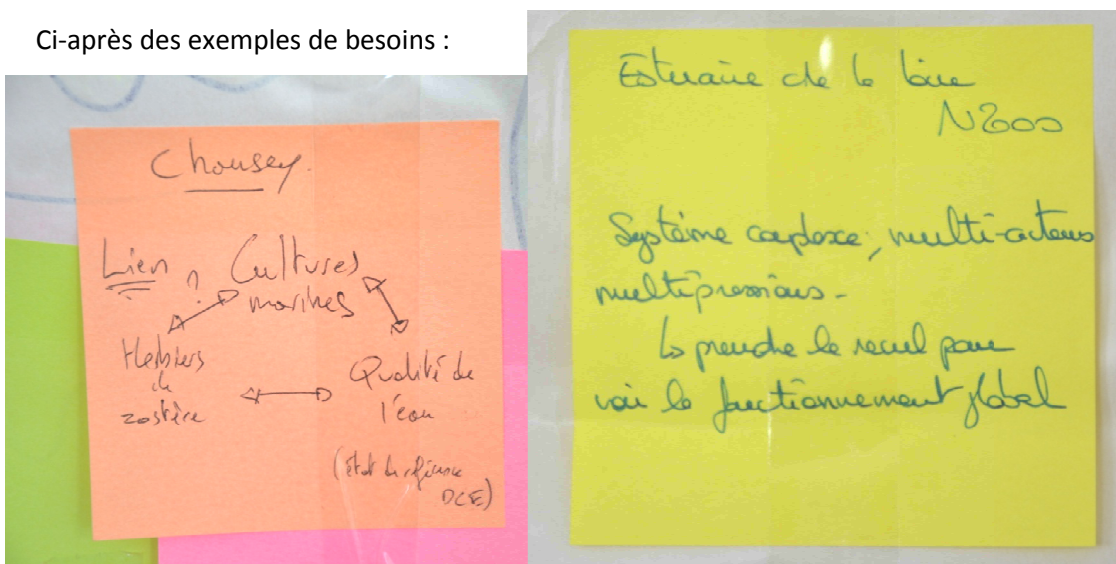 Ci-après des exemples de besoins :
Chausey.
Lien ? Cultures
marines
Herbiers
de
zostère
Qualité de
l'eau
(état de référence
DCE)
Estuaire de la Loire
N2000
Système complexe, multi-acteurs
multipressions -
↳ prendre le recul pour
voir le fonctionnement global